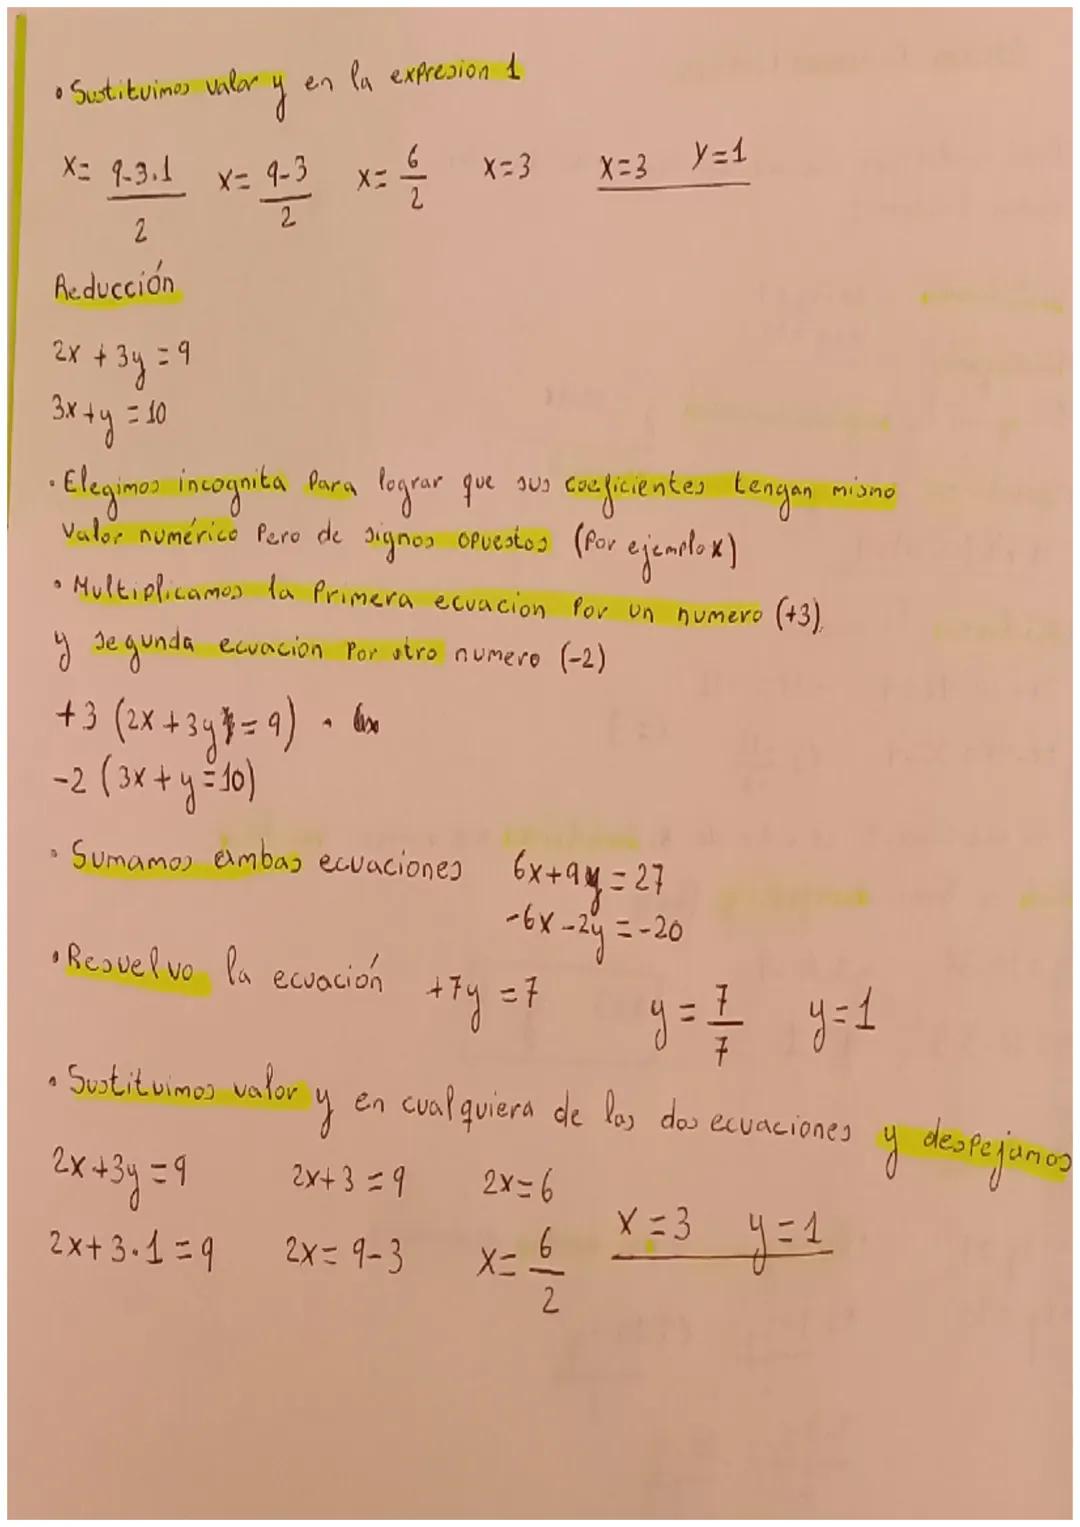 • Sustituimos valor y en la expresion 1
x= 9-3.1/2 x= 9-3/2 x= 6/2 x=3 x=3 y=1
Reducción
2x + 3y = 9
3x + y = 10
• Elegimos incognita para lograr que sus coeficientes tengan mismo
valor numérico pero de signos opuestos (por ejemplo x)
• Multiplicamos la primera ecuacion por un numero (+3),
y segunda ecuación por otro numero (-2)
+3 (2x + 3y = 9)
-2 (3x + y = 10)
• Sumamos ambas ecuaciones 6x+9y = 27
-6x -2y = -20
• Resuelvo la ecuación +7y = 7 y = 7/7 y=1
• Sustituimos valor y en cualquiera de las dos ecuaciones y despejamos
2x+3y = 9 2x+3 = 9 2x=6
2x+3.1 = 9 2x= 9-3 x= 6/2 x=3 y=1